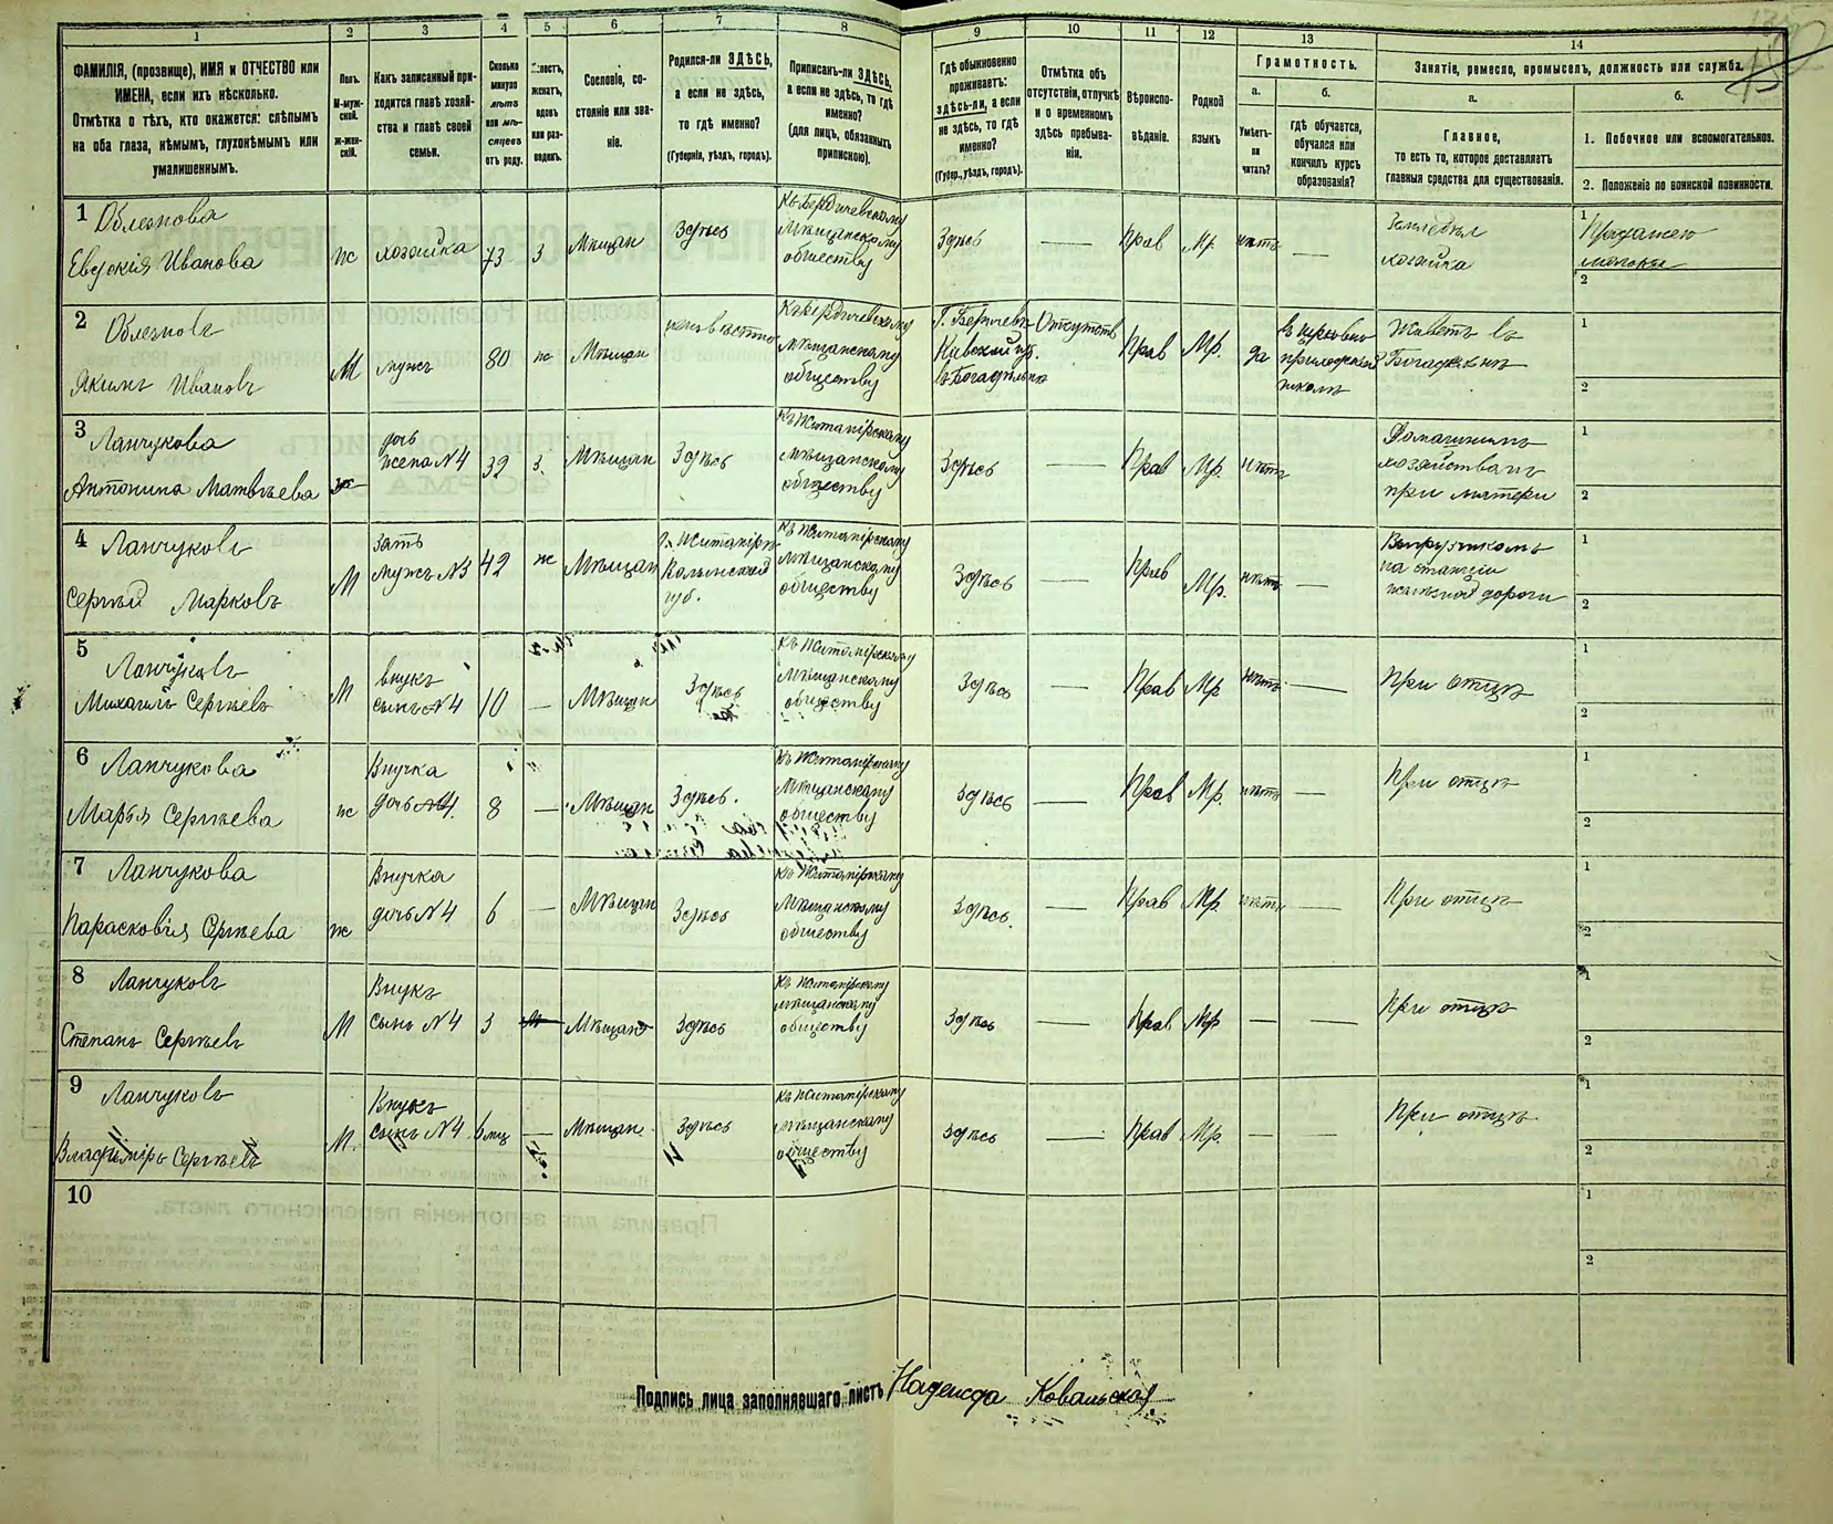 1
2
3
4
5
6
7
8
9
10
11
12
13
14
ФАМИЛІЯ, (прозвище), ИМЯ и ОТЧЕСТВО или
ИМЕНА, если ихъ нѣсколько.
Отмѣтка о тѣхъ, кто окажется: слѣпымъ
на оба глаза, нѣмымъ, глухонѣмымъ или
умалишеннымъ.
Полъ.
М-муж-
ской.
Ж-жен-
скій.
Какъ записанный при-
ходится главѣ хозяй-
ства и главѣ своей
семьи.
Сколько
минуло
лѣтъ
или мѣ-
сяцевъ
отъ роду.
женатъ,
вдовъ
или раз-
веденъ.
Сословіе, со-
стояніе или зва-
ніе.
Родился-ли ЗДѢСЬ,
а если не здѣсь,
то гдѣ именно?
(Губернія, уѣздъ, городъ).
Приписанъ-ли ЗДѢСЬ,
а если не здѣсь, то гдѣ
именно?
(для лицъ, обязанныхъ
припискою).
Гдѣ обыкновенно
проживаетъ:
здѣсь-ли, а если
не здѣсь, то гдѣ
именно?
(Губер., уѣздъ, городъ).
Отмѣтка объ
отсутствіи, отлучкѣ
и о временномъ
здѣсь пребыва-
ніи.
Вѣроиспо-
вѣданіе.
Родной
языкъ
Грамотность.
а.
Умѣетъ-
ли
читать?
б.
гдѣ обучается,
обучался или
кончилъ курсъ
образованія?
Занятіе, ремесло, промыселъ, должность или служба.
а.
Главное,
то есть то, которое доставляетъ
главныя средства для существованія.
б.
1. Побочное или вспомогательное.
2. Положеніе по воинской повинности.
1
Облезнова
Евдокія Иванова
ж
хозяйка
73
з
Мѣщан
Здѣсь
Къ Бердичевскому
Мѣщанскому
обществу
Здѣсь
—
Прав
Мр.
нѣтъ
—
хозяйка
1
Продажею
молока
2
2
Облезновъ
Якимъ Ивановъ
М
мужъ
80
ж
Мѣщан
неизвѣстно
Къ Бердичевскому
мѣщанскому
обществу
Г. Бердичевъ
Кіевской губ.
въ Богадѣльнѣ
Отсутств
Прав
Мр.
да
въ церковно
приходской
школѣ
Живетъ въ
Богадѣльнѣ
1
2
3
Ланчукова
Антонина Матвѣева
ж
дочь
жена N4
32
з.
Мѣщан
Здѣсь
Къ Житомірскому
мѣщанскому
обществу
Здѣсь
—
Прав
Мр.
нѣтъ
Домашнимъ
хозяйствомъ
при матери
1
2
4
Ланчуковъ
Сергѣй Марковъ
М
Зять
мужъ N3
42
ж
Мѣщан
г. Житоміръ
Волынской
губ.
Къ Житомірскому
мѣщанскому
обществу
Здѣсь
—
Прав
Мр.
нѣтъ
—
на станціи
желѣзной дороги
1
2
5
Ланчуковъ
Михаилъ Сергѣевъ
М
внукъ
сынъ N4
10
—
Мѣщан
Здѣсь
Къ Житомірскому
мѣщанскому
обществу
Здѣсь
—
Прав
Мр
нѣтъ
—
При отцѣ
1
2
6
Ланчукова
Марья Сергѣева
ж
Внучка
дочь N4.
8
—
Мѣщан
Здѣсь.
Къ Житомірскому
мѣщанскому
обществу
Здѣсь
—
Прав
Мр.
нѣтъ
—
При отцѣ
1
2
7
Ланчукова
Парасковія Сергѣева
ж
Внучка
дочь N4
6
—
Мѣщан
Здѣсь
Къ Житомірскому
мѣщанскому
обществу
Здѣсь.
—
Прав
Мр.
нѣтъ
—
При отцѣ
1
2
8
Ланчуковъ
Степанъ Сергѣевъ
М
Внукъ
сынъ N4
3
Мѣщан
Здѣсь
Къ Житомірскому
мѣщанскому
обществу
Здѣсь
—
Прав
Мр
—
—
При отцѣ
1
2
9
Ланчуковъ
Владиміръ Сергѣевъ
М.
Внукъ
сынъ N4
6 мц
—
Мѣщан.
Здѣсь
Къ Житомірскому
мѣщанскому
обществу
Здѣсь
—
Прав
Мр.
—
—
При отцѣ
1
2
10
1
2
Подпись лица заполнявшаго листъ Надежда Ковальская